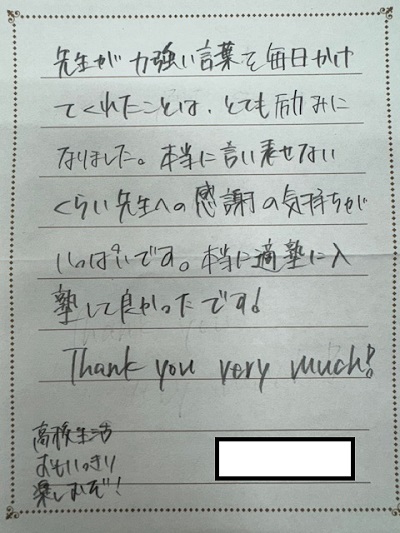 先生が力強い言葉を毎日かけ
てくれたことは、とても励みに
なりました。本当に言い乗せない
くらい先生への感謝の気持ちが
いっぱいです。本当に適塾に入
塾して良かったです!
Thank you very much!
高校生活
おもいっきり
楽しむぞ!